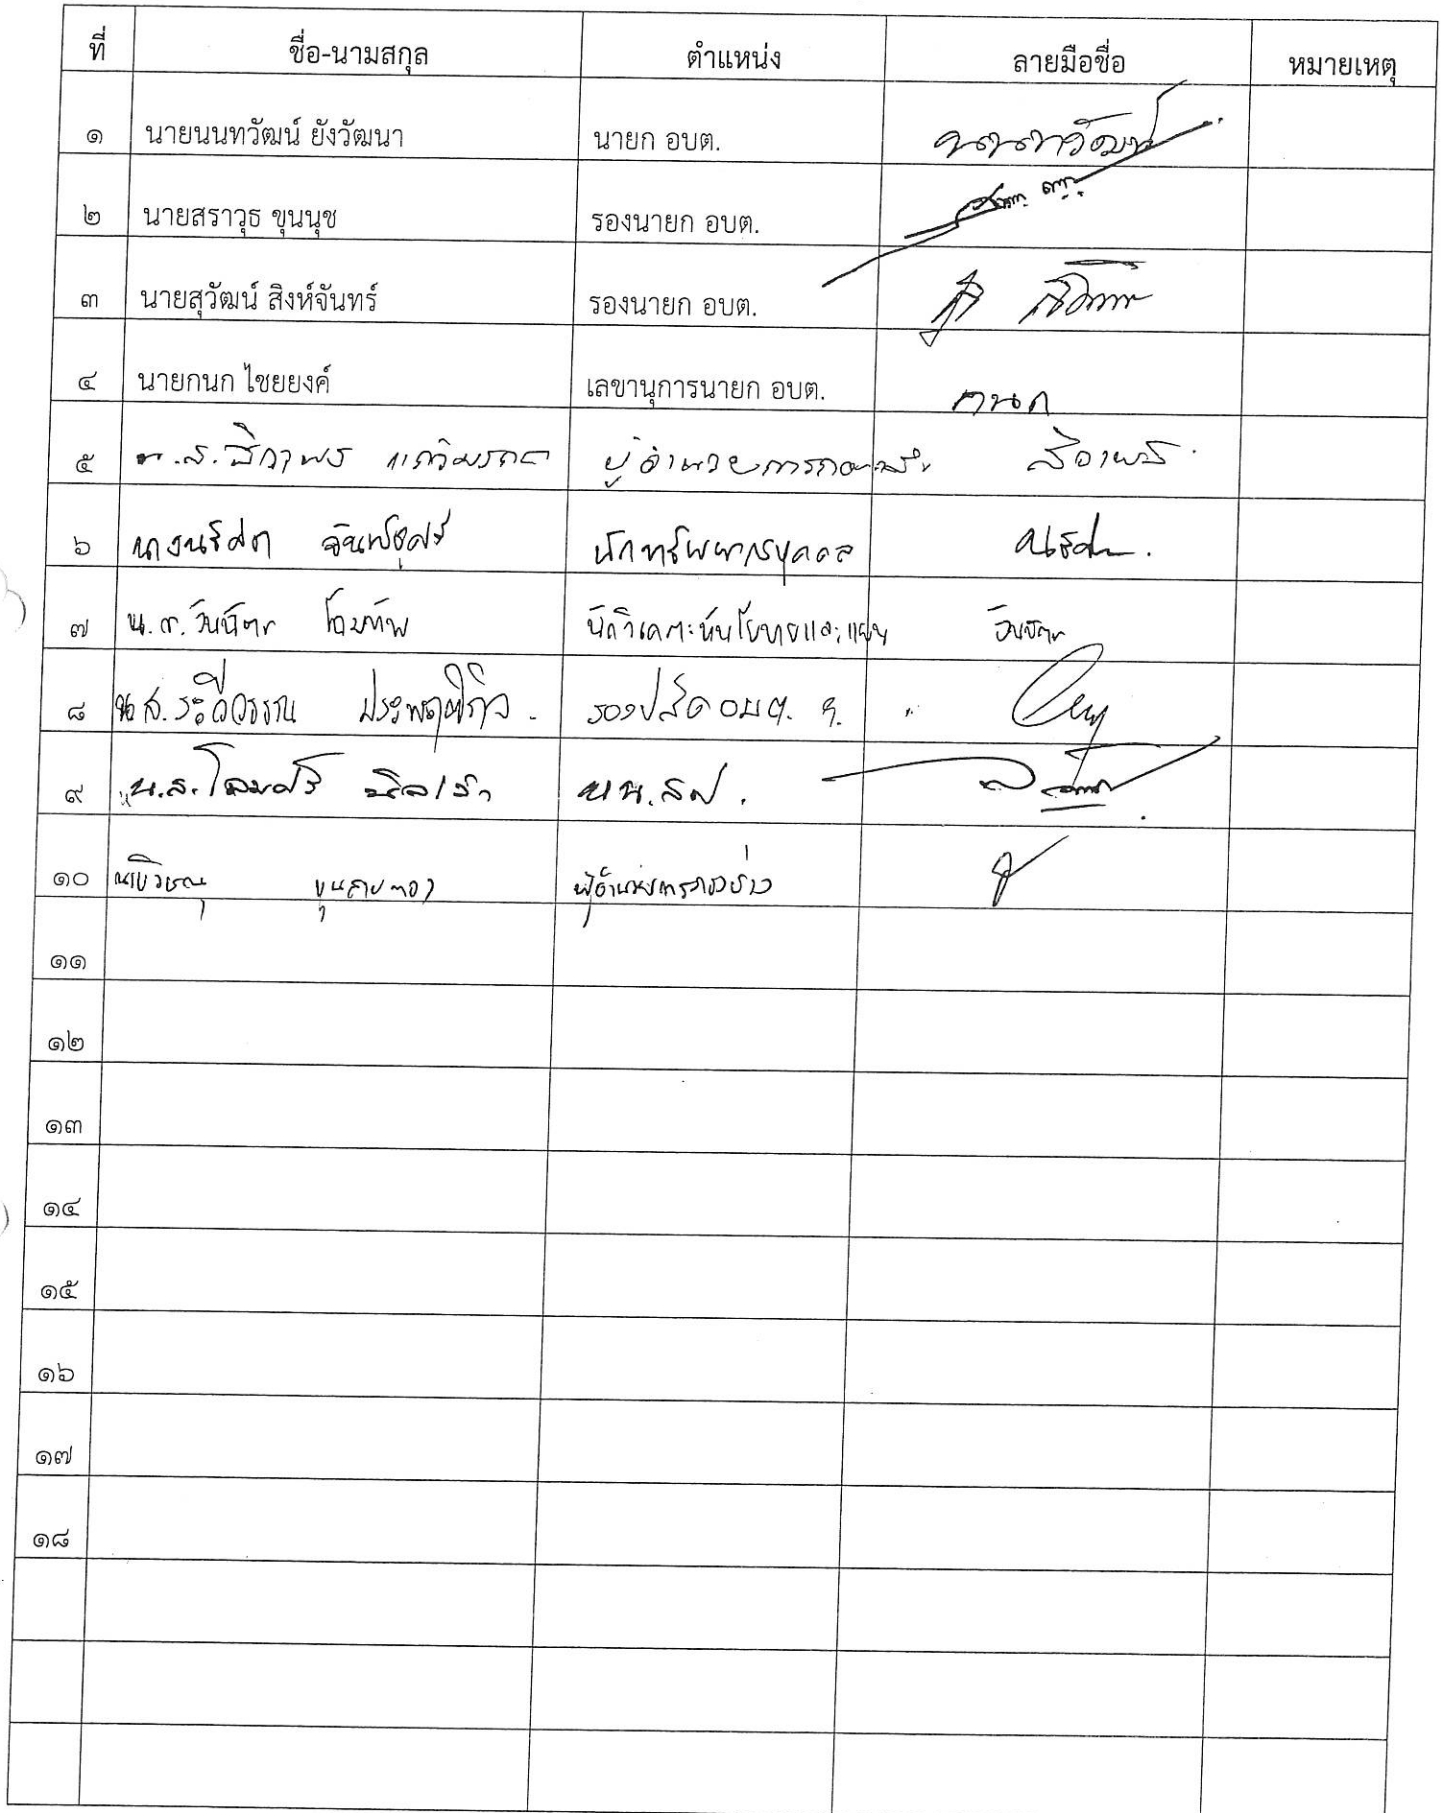 ที่ ชื่อ-นามสกุล ตำแหน่ง ลายมือชื่อ หมายเหตุ
๑ นายนนทวัฒน์ ยังวัฒนา นายก อบต. นนทวัฒน์
๒ นายสราวุธ ขุนนุช รองนายก อบต.
๓ นายสุวัฒน์ สิงห์จันทร์ รองนายก อบต.
๔ นายกนก ไชยยงค์ เลขานุการนายก อบต. กนก
๕ น.ส.ธิดาพร ผู้อำนวยการกองคลัง
๖ นางนริศา จันทร์ชูศรี นักทรัพยากรบุคคล
๗ น.ส. โฉมทัพ นักวิเคราะห์นโยบายและแผน
๘ น.ส. ประพฤติกิจ รองปลัด อบต.
๙ น.ส.โฉมศรี หน.สป.
๑๐ นายวิษณุ ขุนลายทอง ผู้อำนวยการกองช่าง
๑๑
๑๒
๑๓
๑๔
๑๕
๑๖
๑๗
๑๘